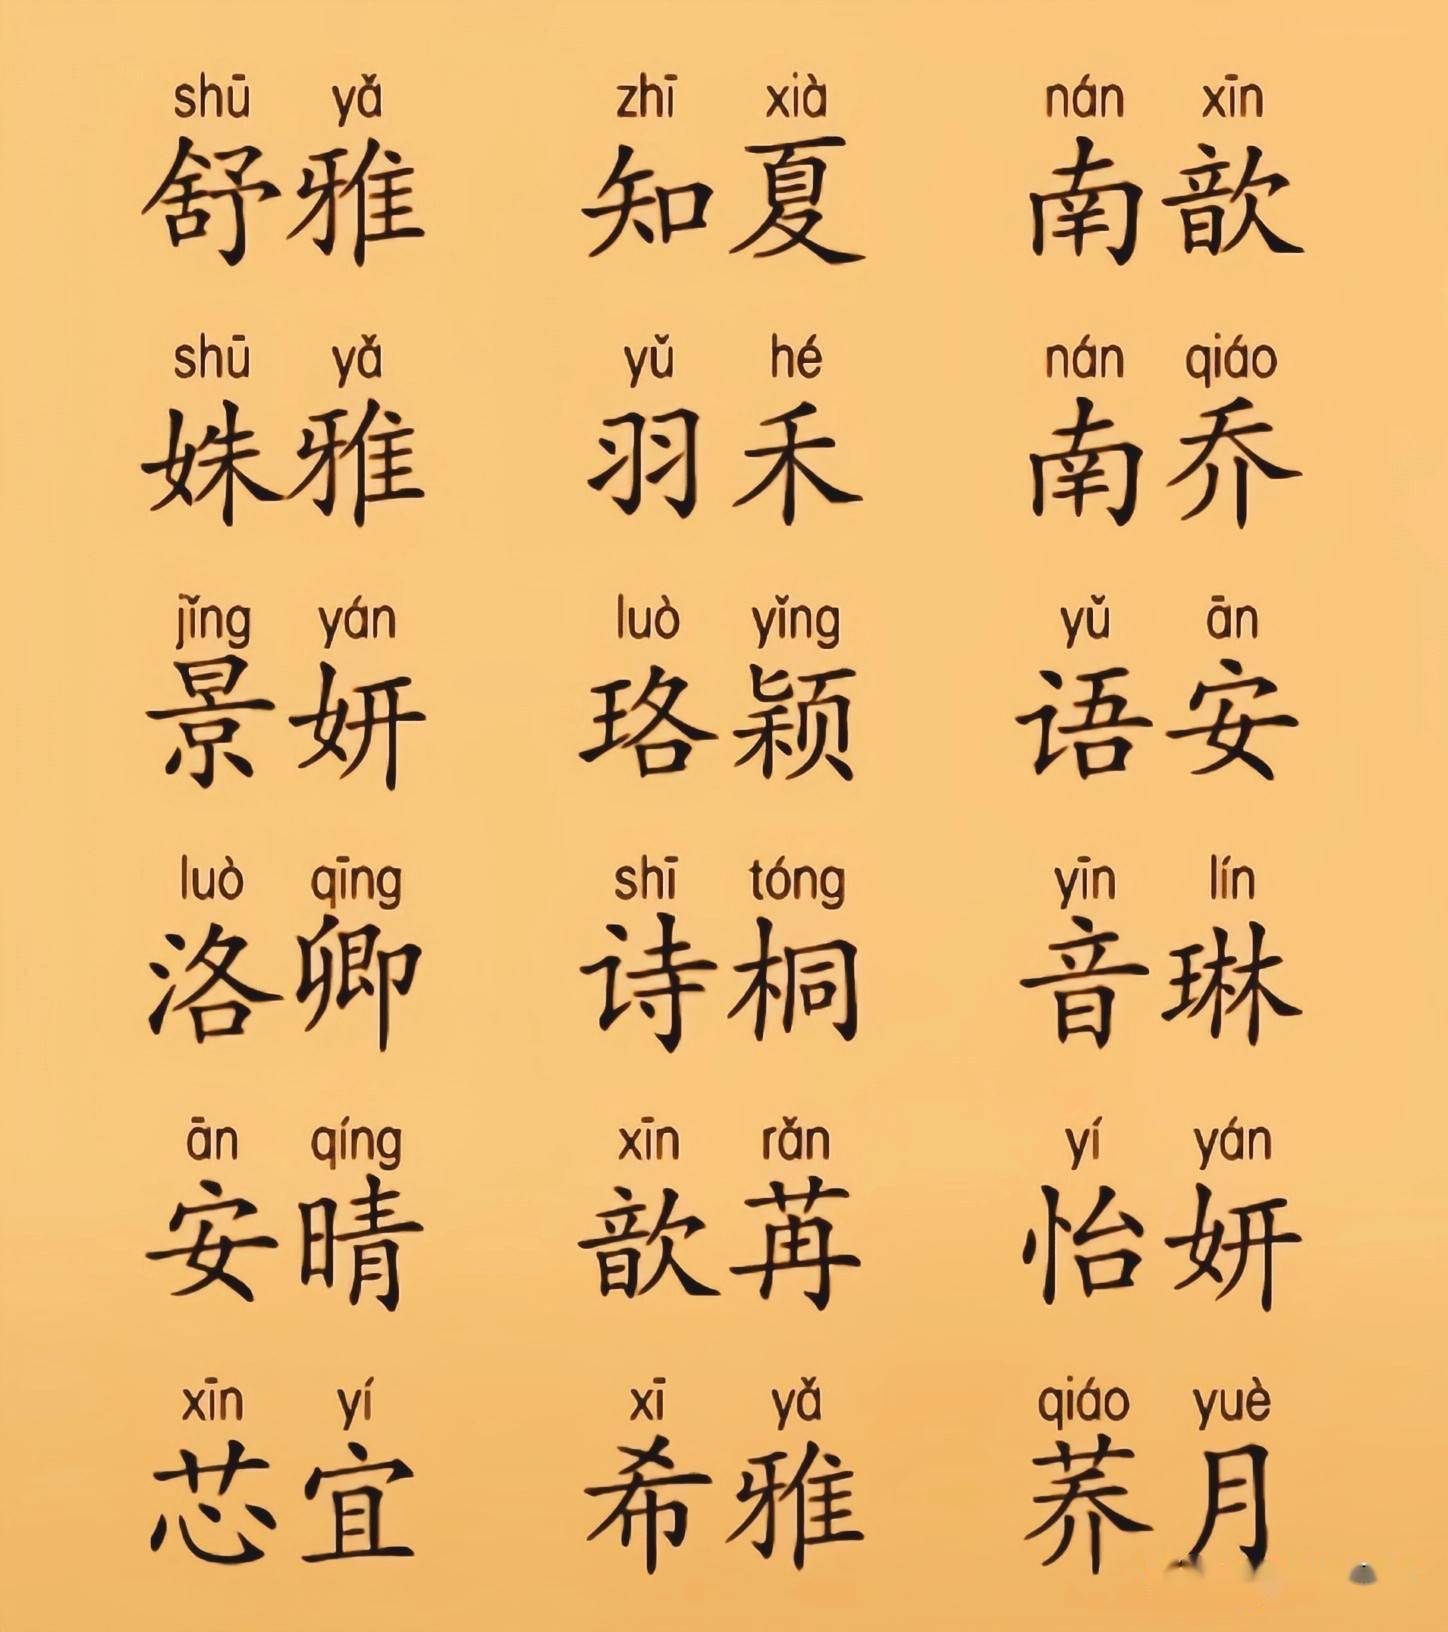 shū yǎ zhī xià nán xīn
舒雅 知夏 南歆
shū yǎ yǔ hé nán qiáo
姝雅 羽禾 南乔
jǐng yán luò yǐng yǔ ān
景妍 珞颖 语安
luò qīng shī tóng yīn lín
洛卿 诗桐 音琳
ān qíng xīn rǎn yí yán
安晴 歆苒 怡妍
xīn yí xī yǎ qiáo yuè
芯宜 希雅 荞月